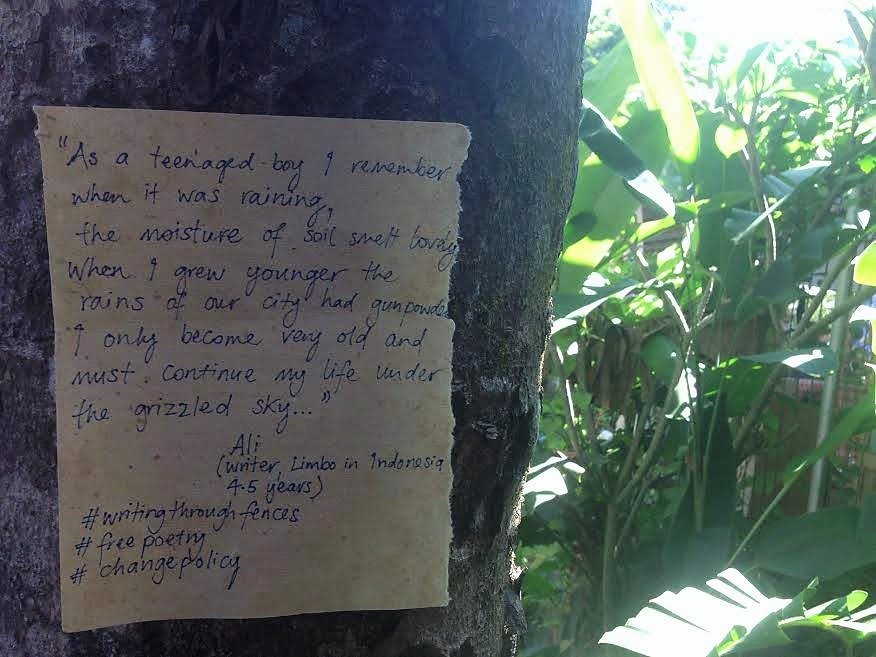 "As a teenaged boy I remember
when it was raining,
the moisture of soil smelt lovely
When I grew younger the
rains of our city had gunpowder
I only become very old and
must continue my life under
the grizzled sky..."
Ali
(writer, Limbo in Indonesia
4.5 years)
#writingthroughfences
#free poetry
# changepolicy